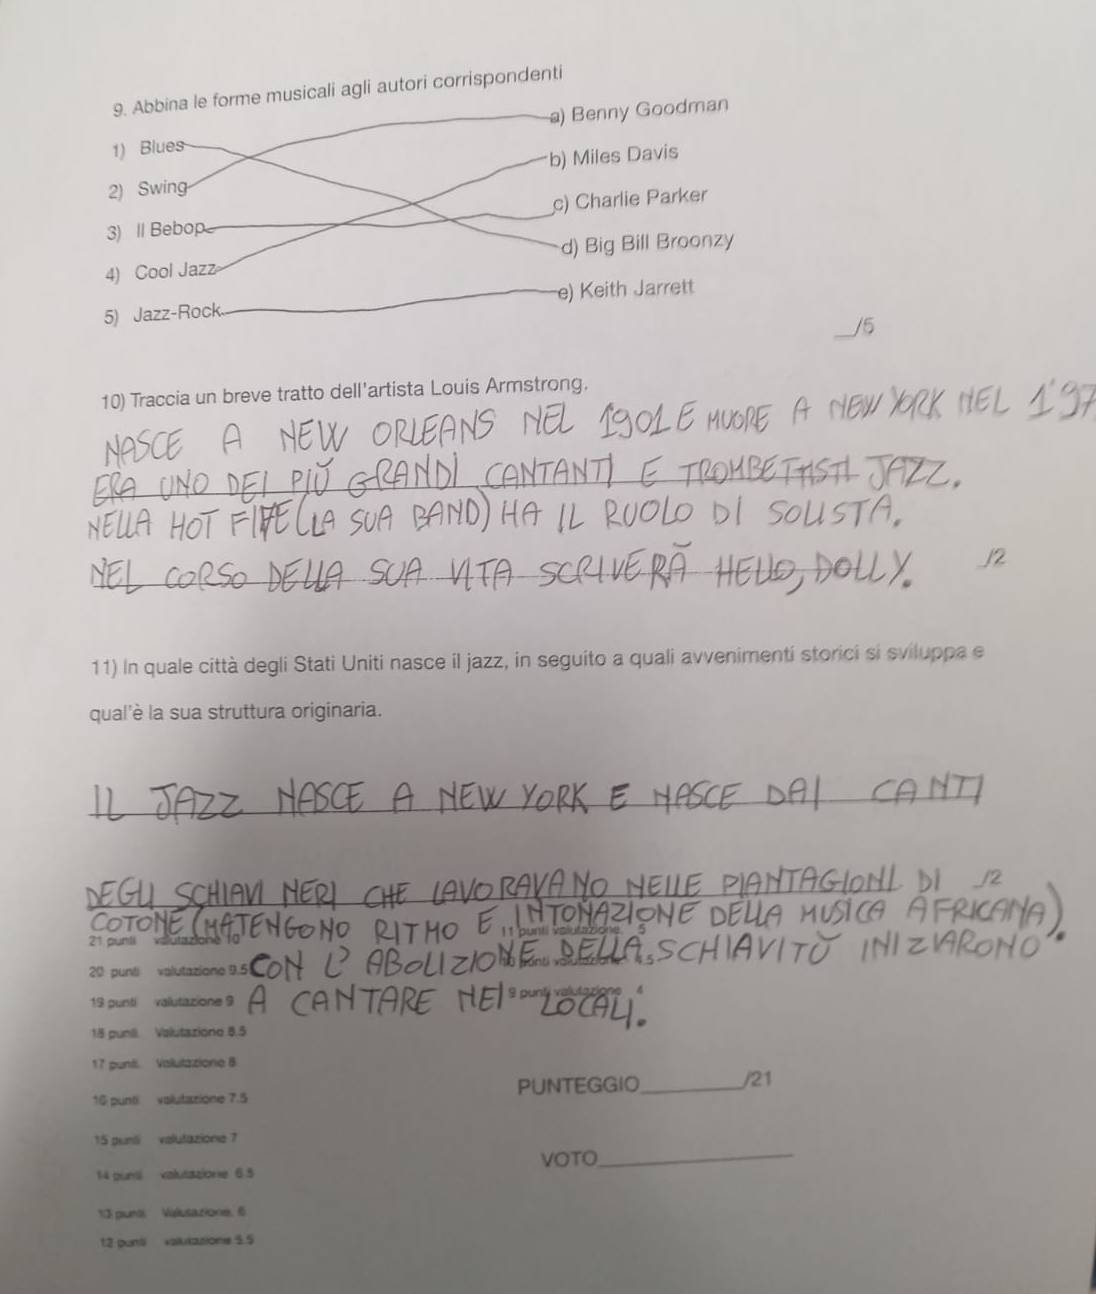 9. Abbina le forme musicali agli autori corrispondenti
a) Benny Goodman
1) Blues
b) Miles Davis
2) Swing
c) Charlie Parker
3) Il Bebop
d) Big Bill Broonzy
4) Cool Jazz
e) Keith Jarrett
5) Jazz-Rock
__/5
10) Traccia un breve tratto dell'artista Louis Armstrong.
NASCE A NEW ORLEANS NEL 1901 E MUORE A NEW YORK NEL 1'97
ERA UNO DEI PIÙ GRANDI CANTANTI E TROMBETTISTI JAZZ.
NELLA HOT FIVE (LA SUA BAND) HA IL RUOLO DI SOLISTA.
NEL CORSO DELLA SUA VITA SCRIVERÀ HELLO, DOLLY. /2
11) In quale città degli Stati Uniti nasce il jazz, in seguito a quali avvenimenti storici si sviluppa e
qual'è la sua struttura originaria.
IL JAZZ NASCE A NEW YORK E NASCE DAI CANTI
DEGLI SCHIAVI NERI CHE LAVORAVANO NELLE PIANTAGIONI DI /2
COTONE (MATENGONO RITMO E INTONAZIONE DELLA MUSICA AFRICANA).
21 punti valutazione 10 11 punti valutazione 5
CON L'ABOLIZIONE DELLA SCHIAVITÙ INIZIARONO
20 punti valutazione 9.5
A CANTARE NEI LOCALI.
19 punti valutazione 9 9 punti valutazione 4
18 punti. Valutazione 8.5
17 punti. Valutazione 8
PUNTEGGIO________/21
16 punti valutazione 7.5
15 punti valutazione 7
VOTO
14 punti valutazione 6.5
13 punti. Valutazione. 6
12 punti valutazione 5.5